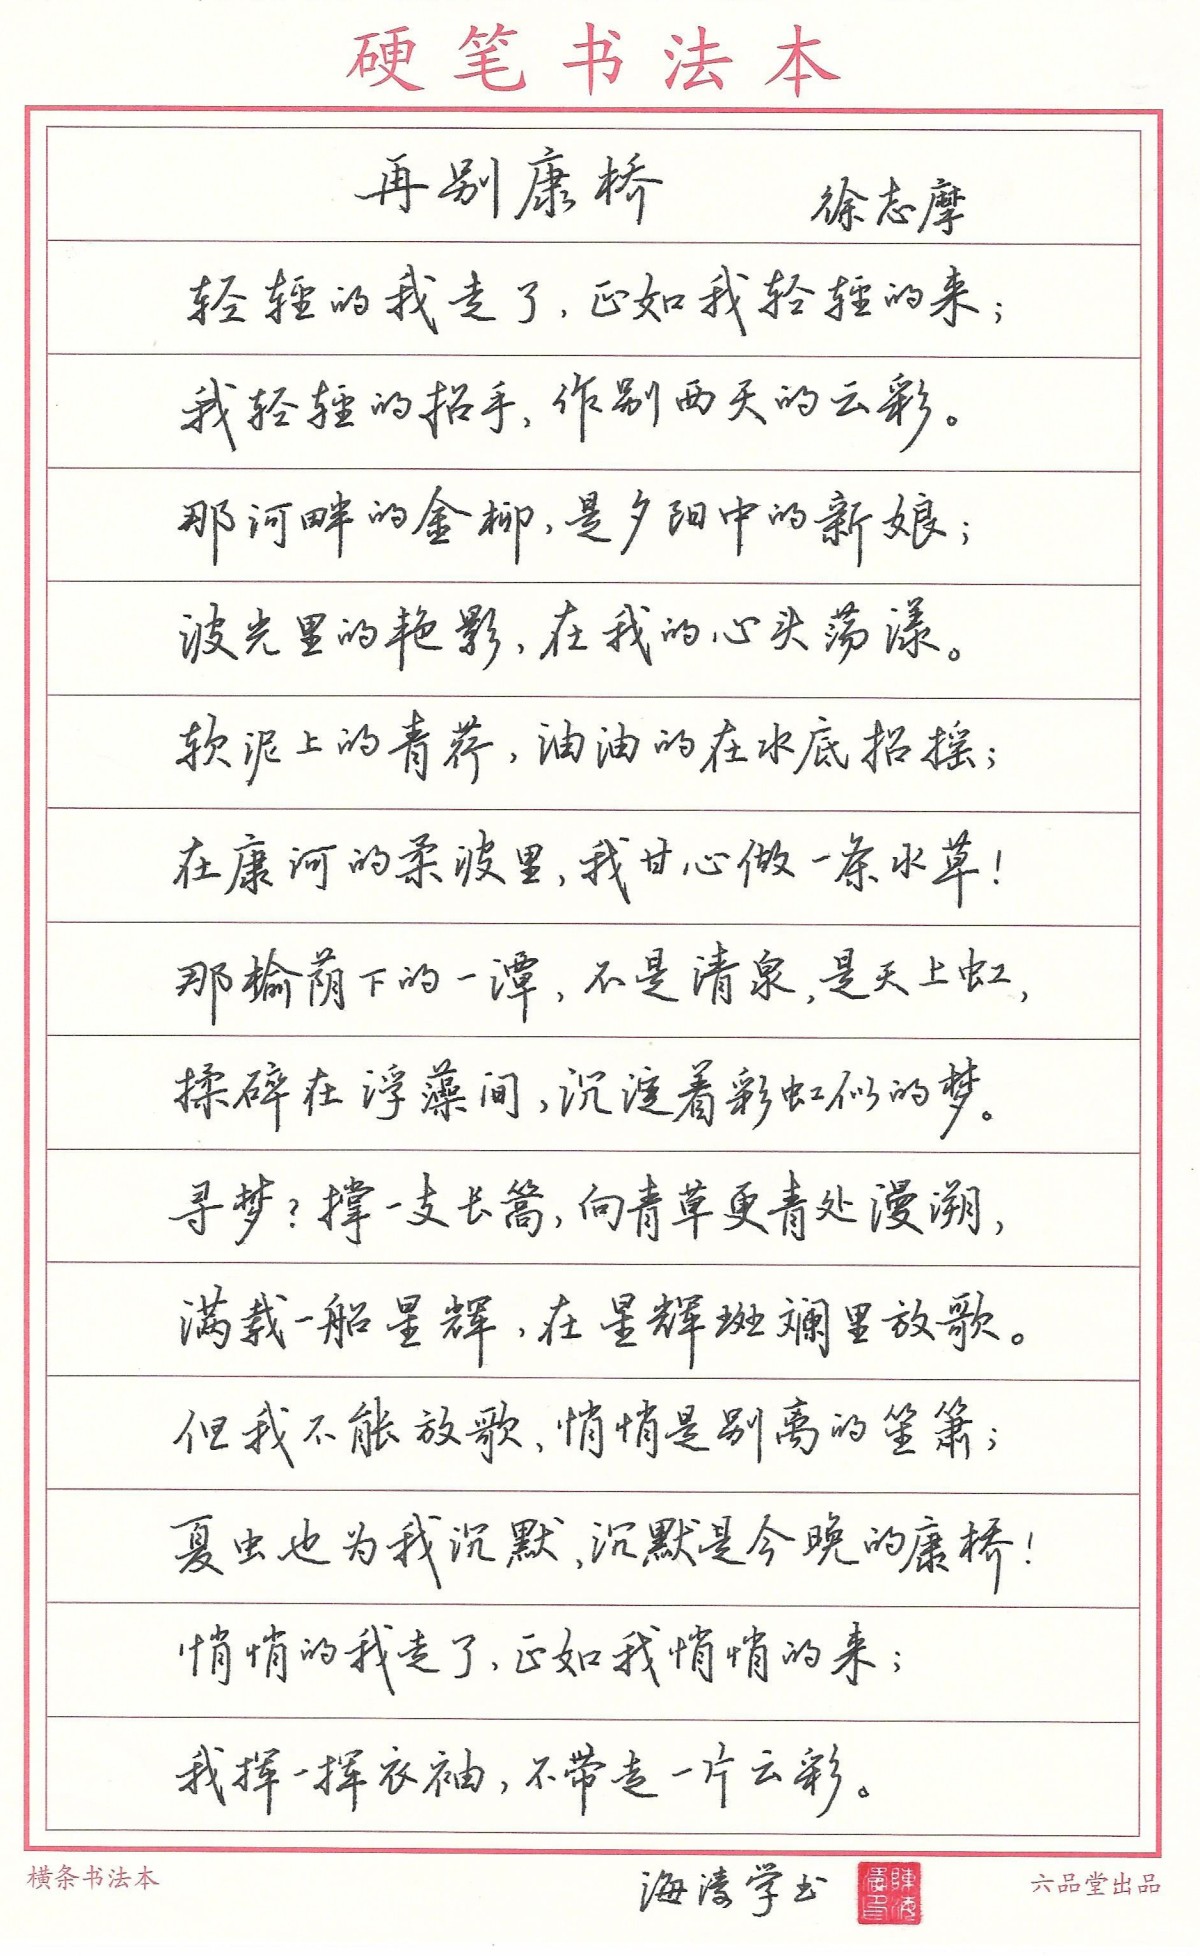 硬笔书法本
再别康桥 徐志摩
轻轻的我走了,正如我轻轻的来;
我轻轻的招手,作别西天的云彩。
那河畔的金柳,是夕阳中的新娘;
波光里的艳影,在我的心头荡漾。
软泥上的青荇,油油的在水底招摇;
在康河的柔波里,我甘心做一条水草!
那榆荫下的一潭,不是清泉,是天上虹,
揉碎在浮藻间,沉淀着彩虹似的梦。
寻梦?撑一支长篙,向青草更青处漫溯,
满载一船星辉,在星辉斑斓里放歌。
但我不能放歌,悄悄是别离的笙箫;
夏虫也为我沉默,沉默是今晚的康桥!
悄悄的我走了,正如我悄悄的来;
我挥一挥衣袖,不带走一片云彩。
海涛学书
横条书法本 六品堂出品